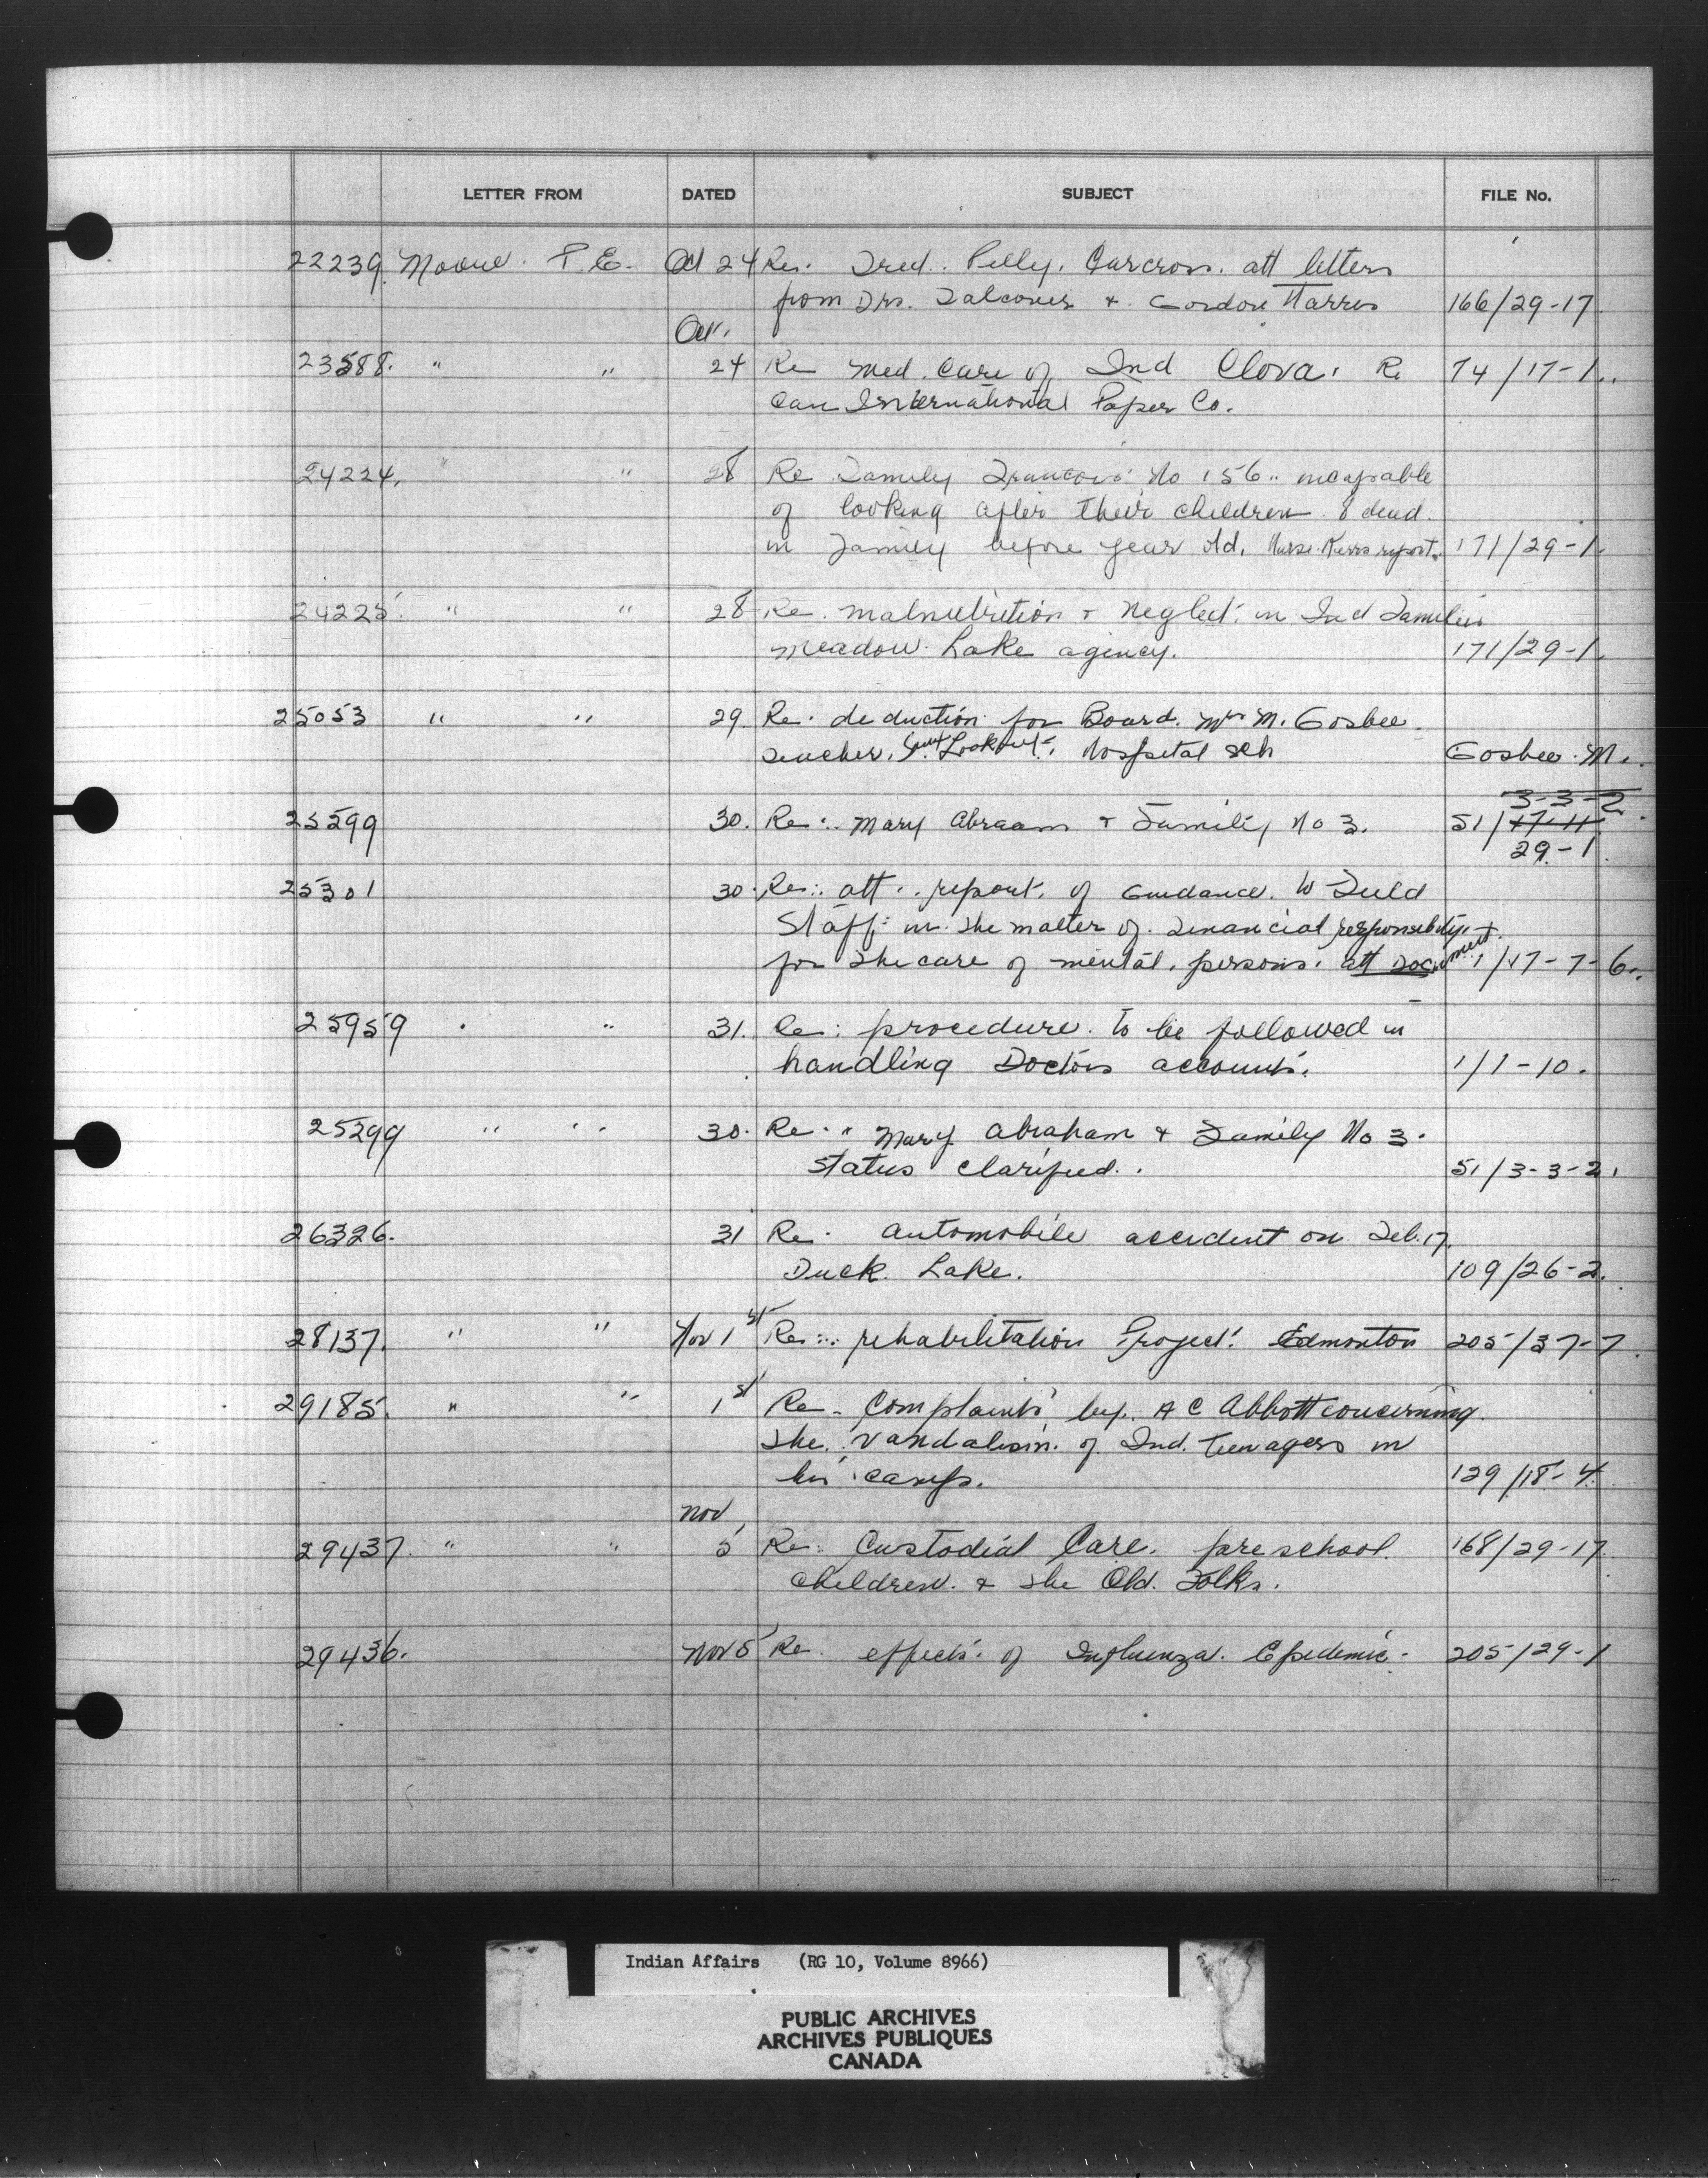 LETTER FROM DATED SUBJECT FILE No.
22239 Moore P.E. Oct 24 Re. Fred. Pelly. Carcross. att letters
from Drs. Falconer & Gordon Harris 166/29-17
Oct.
23588. " " 24 Re Med. Care of Ind Clova. Re 74/17-1.
Can International Paper Co.
24224. " " 28 Re Family Francois No 156. incapable
of looking after their children. 8 dead.
in Family before year old. Nurse Kerrs report. 171/29-1.
24225. " " 28 Re. malnutrition & Neglect. in Ind Families
Meadow Lake agency. 171/29-1.
25053 " " 29. Re. deduction for Board. Mrs M. Gosbee.
Teacher. Sioux Lookout. Hospital Sch Gosbee. M.
3-3-2
25299 30. Re: Mary Abraam & Family No 3. 51/17-11.
29-1.
25301 30. Re: att. report. of Guidance. to Field
Staff: in the matter of. Financial responsibility.
for the care of mental. persons. att Document. 1/17-7-6.
25959 " " 31. Re: procedure. to be followed in
handling Doctors accounts. 1/1-10.
25299 " " 30. Re. " Mary Abraham & Family No 3.
Status clarified. 51/3-3-2.
26326. 31 Re. automobile accident on Feb. 17.
Duck. Lake. 109/26-2.
28137. " " Nov 1st Re: rehabilitation Project. Edmonton 205/37-7.
29185. " " 1st Re - Complaints by. A C Abbott concerning.
the vandalism. of Ind. teenagers in
his camp. 129/18-4.
Nov
29437. " " 5 Re: Custodial Care. preschool. 168/29-17.
children. & the Old. Folks.
29436. Nov 5 Re. effects. of Influenza. Epidemic. 205/29-1
Indian Affairs (RG 10, Volume 8966)
PUBLIC ARCHIVES
ARCHIVES PUBLIQUES
CANADA